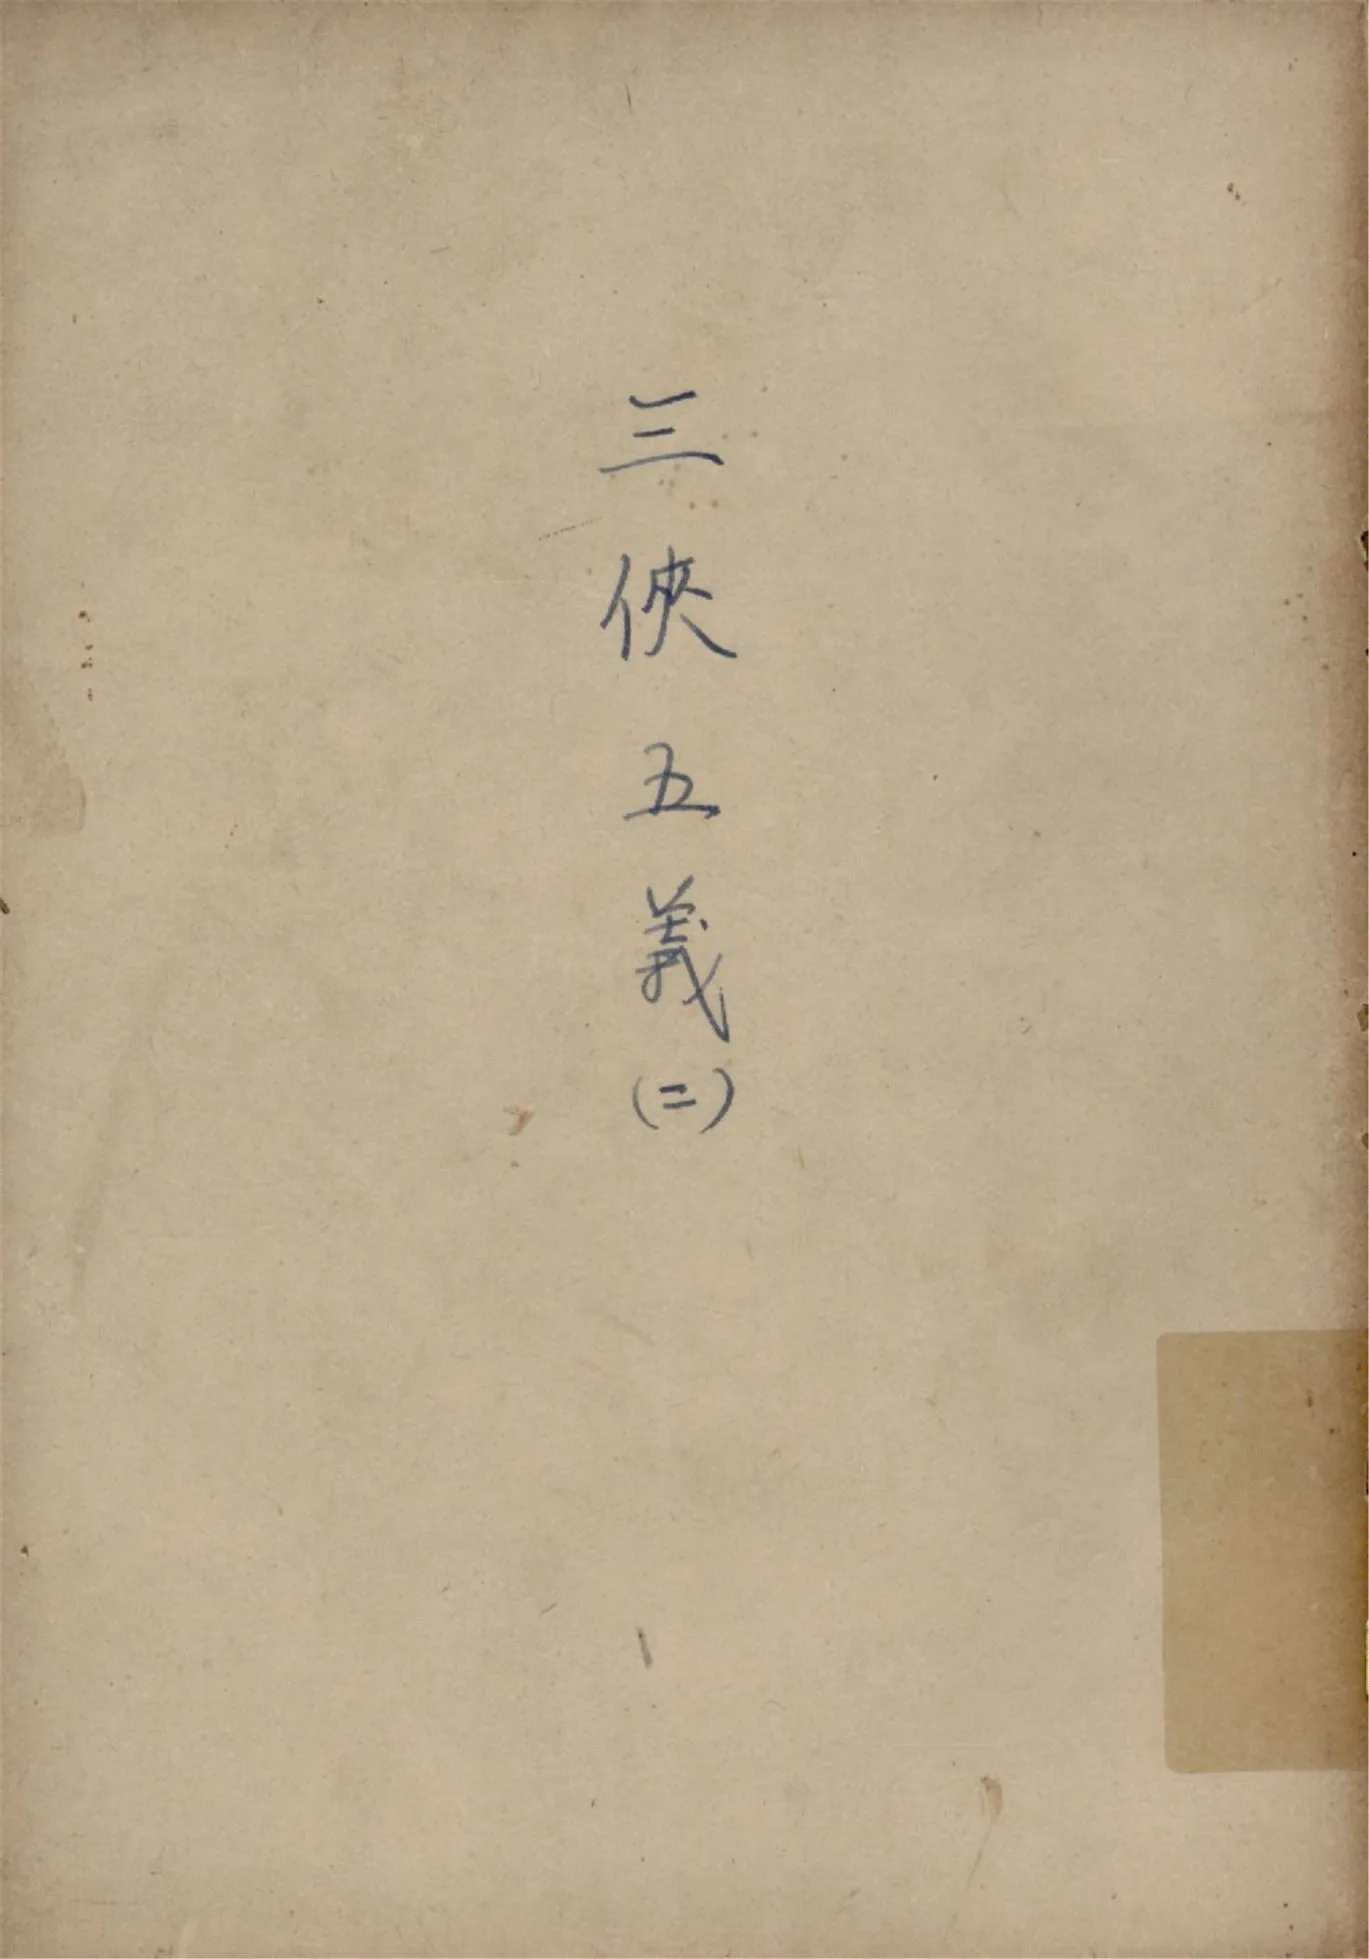 三俠五義(二)